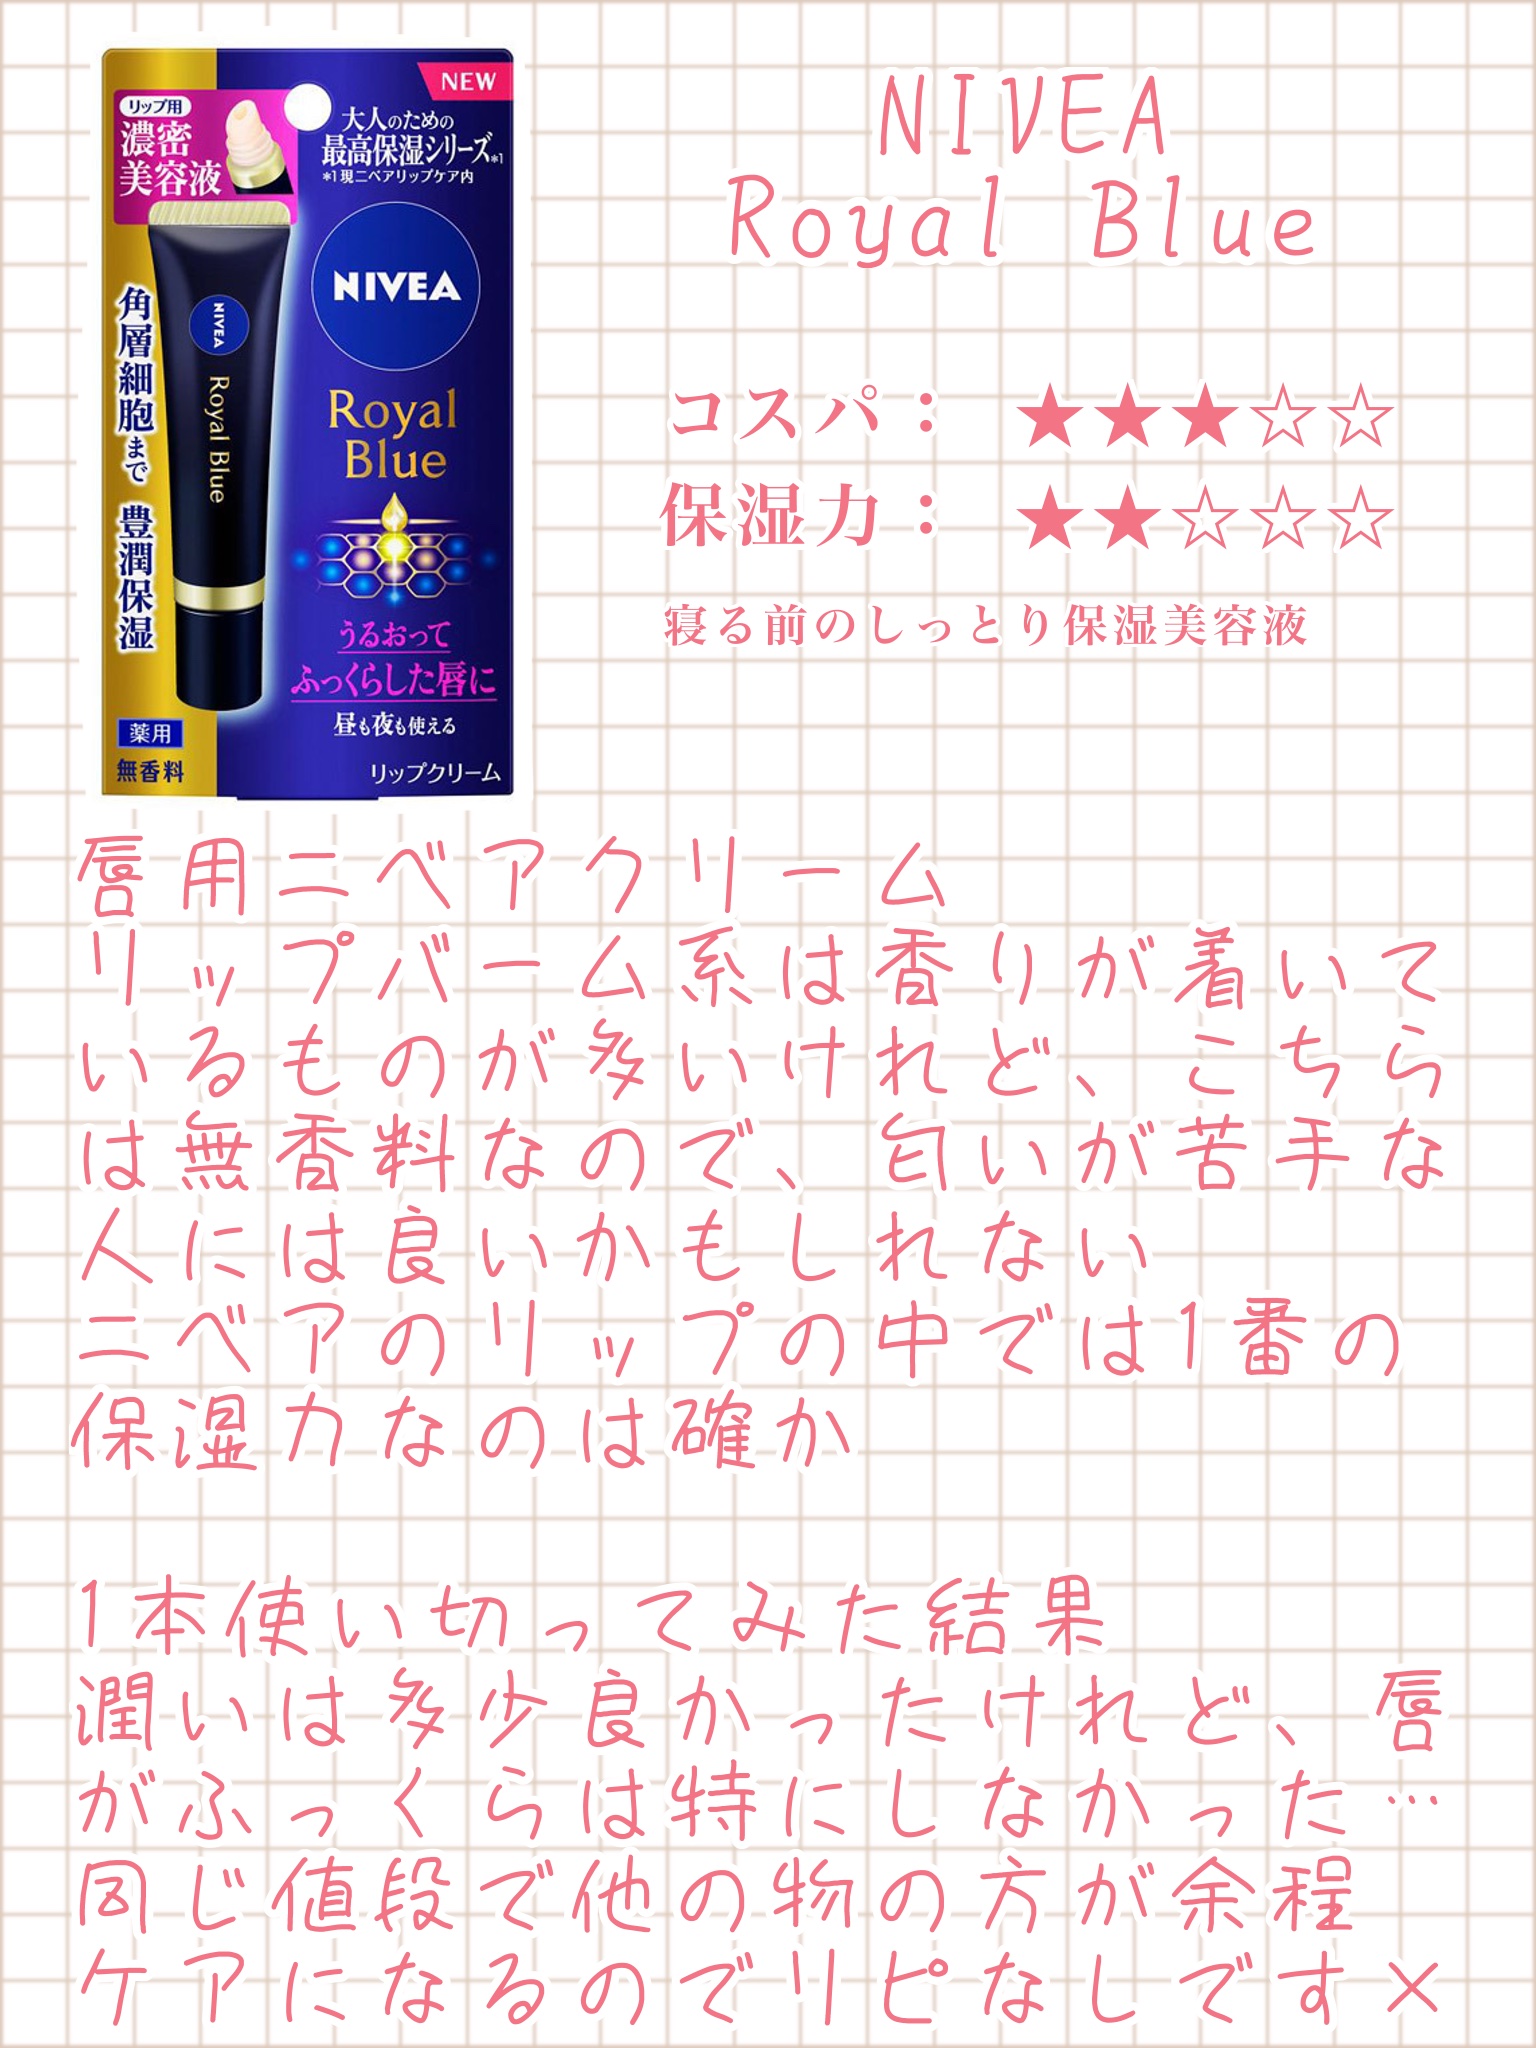 NEW
リップ用
濃密
美容液
大人のための
最高保湿シリーズ*1
*1 現ニベアリップケア内
NIVEA
Royal
Blue
NIVEA
Royal Blue
角層細胞まで 豊潤保湿
うるおって
ふっくらした唇に
昼も夜も使える
薬用
無香料
リップクリーム
NIVEA
Royal Blue
コスパ： ★★★☆☆
保湿力： ★★☆☆☆
寝る前のしっとり保湿美容液
唇用ニベアクリーム
リップバーム系は香りが着いて
いるものが多いけれど、こちら
は無香料なので、匂いが苦手な
人には良いかもしれない
ニベアのリップの中では1番の
保湿力なのは確か
1本使い切ってみた結果
潤いは多少良かったけれど、唇
がふっくらは特にしなかった…
同じ値段で他の物の方が余程
ケアになるのでリピなしです×